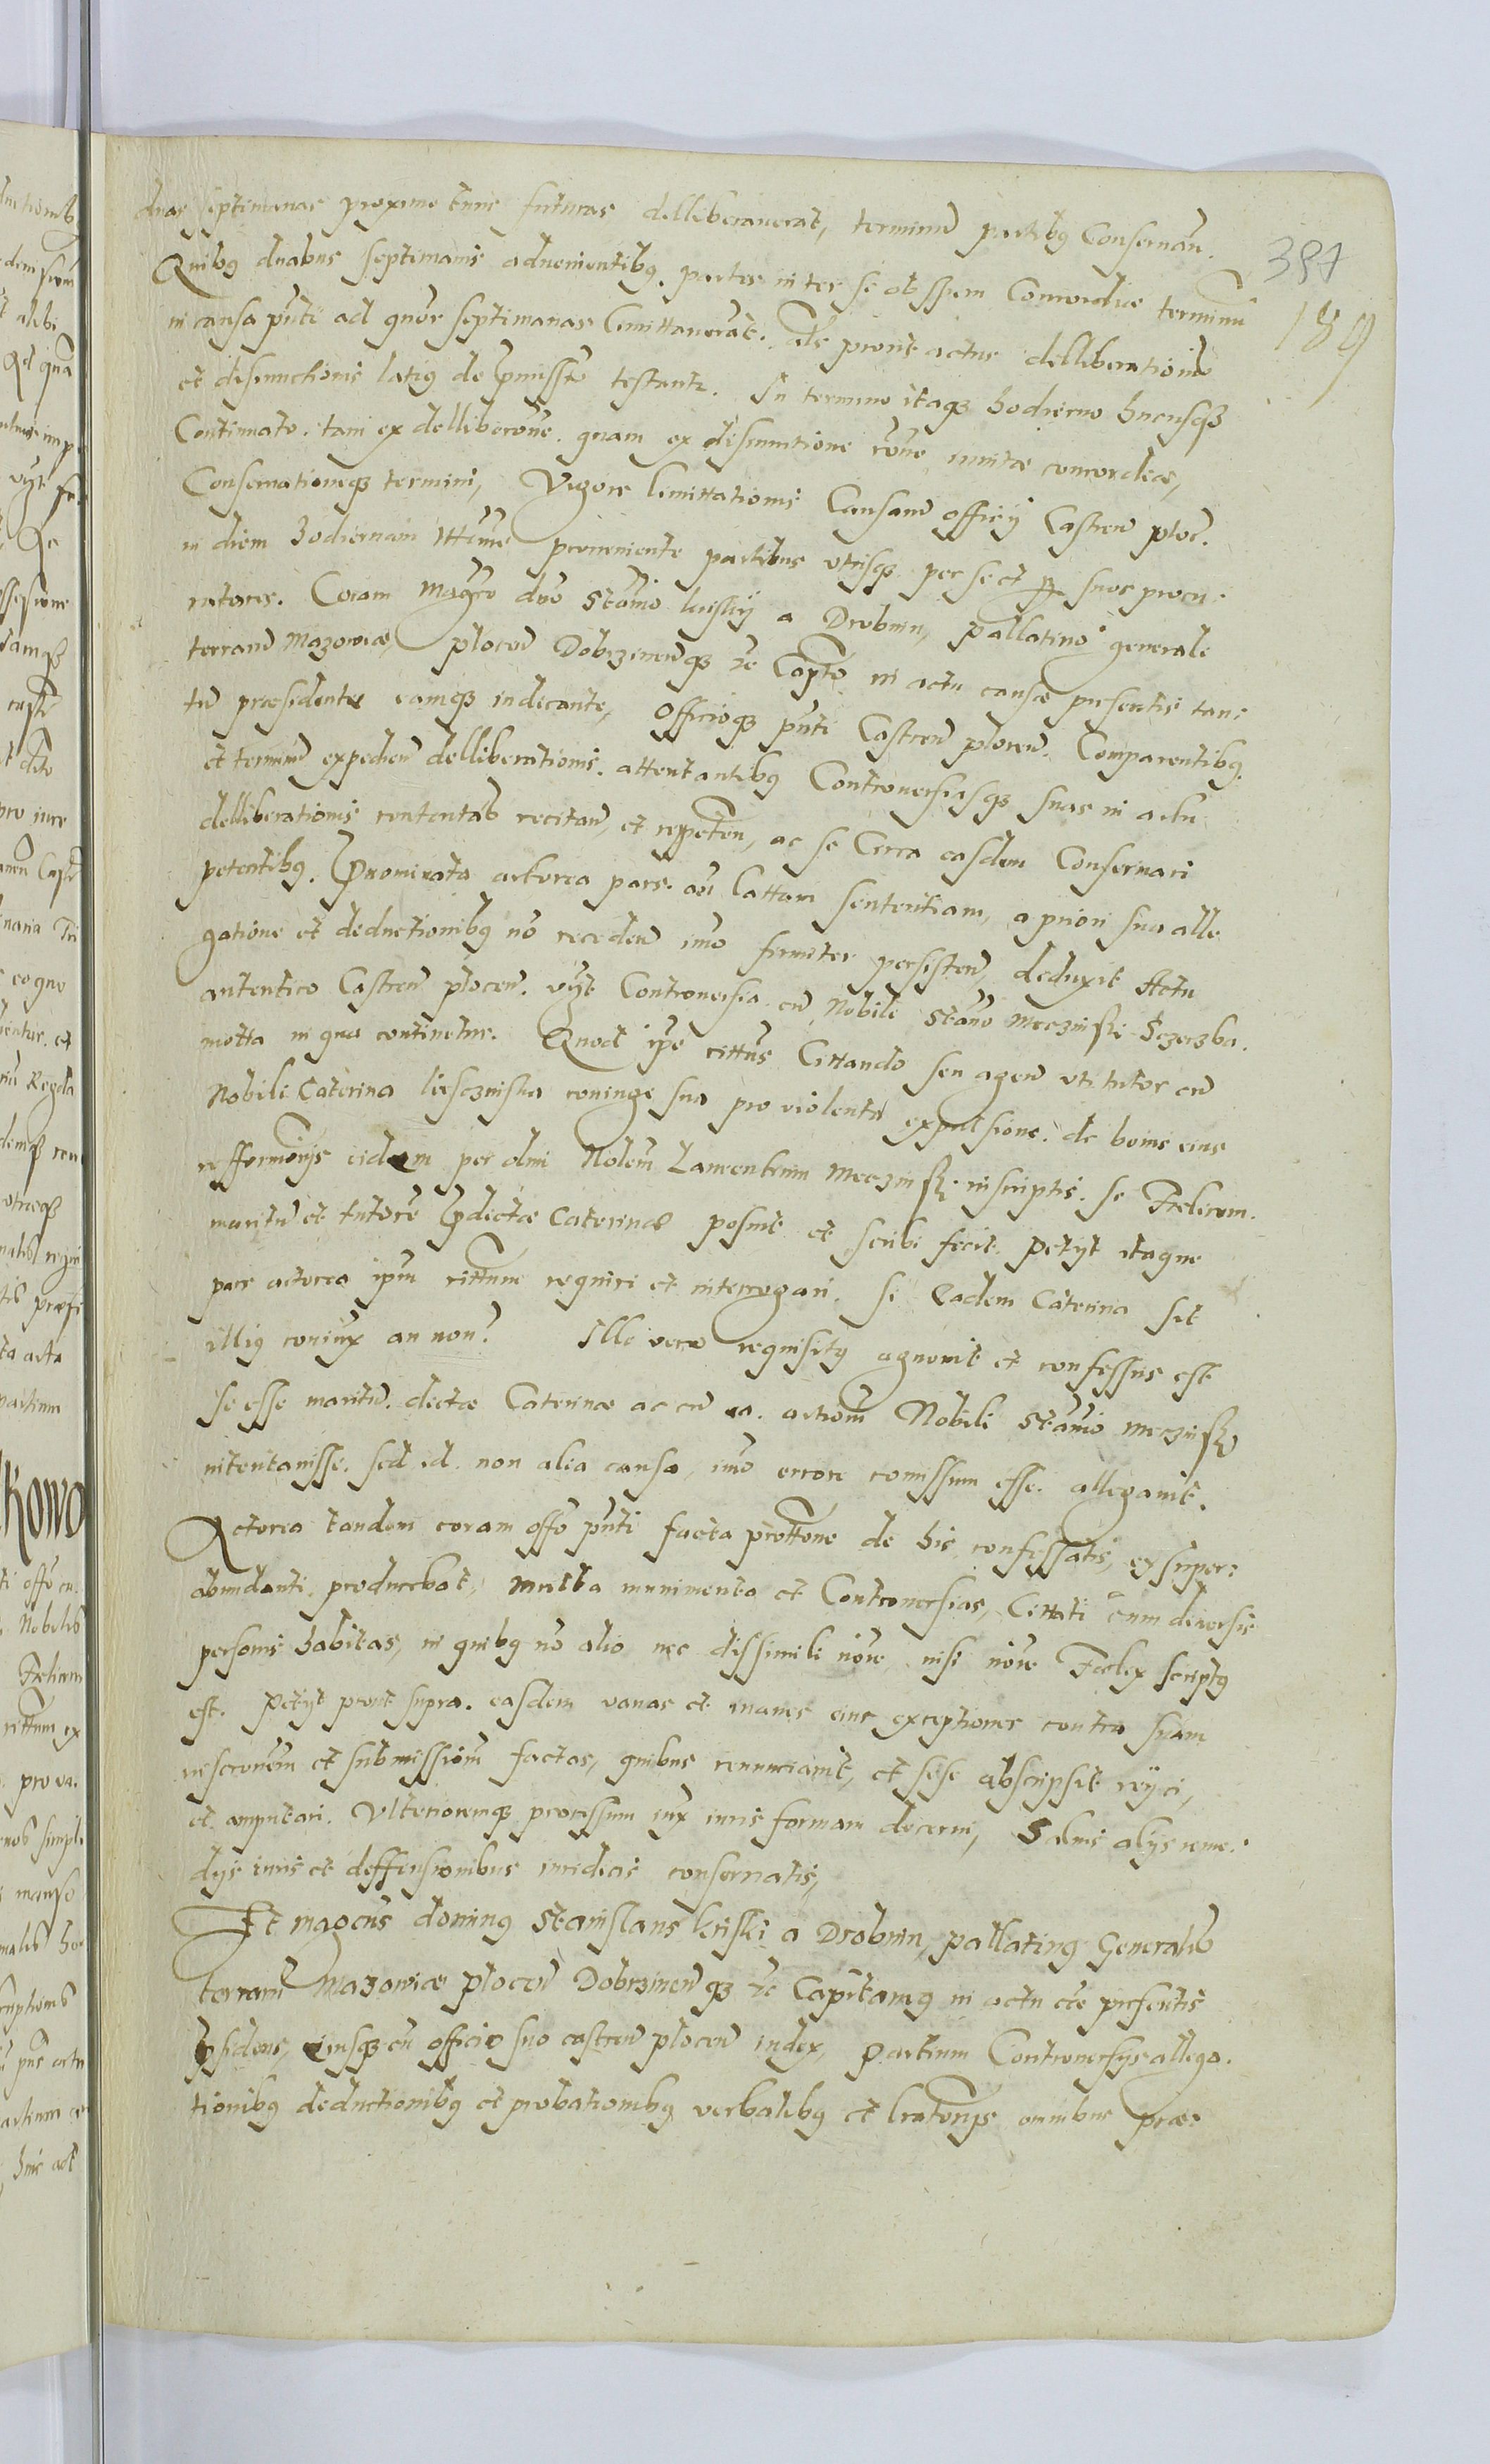 duas septimanas proxime tunc futuras delliberauerat, terminu partibq Conseruan.
Quibq duabus septimanis aduenientibq. partes inter se ob spem Concordiae terminu
in causa pnti ad quor septimanas limittauerat. Als prout actus delliberationis
et disiunctionis latiq de pmissis testantr. In termino itaqz hodierno hucusqz
Continuato. tam ex delliberone. quam ex disiunctione rone initae concordiae,
Conseruationeqz termini, Vigore limittationis Causaru officij Castren ploc.
in diem hodiernam ittme proueniente partibus vtrisqz per se et p suos procu-
ratores. Coram Magco dno Stanio kriskij a Drobnin, pallatino generale
terraru Mazouiae, plocen Dobrzinenqz etc Capto in actu causae presentis tan-
tu presidente eamqz iudicante, Officioqz pnti Castren plocen. Comparentibq.
et terminu expedien delliberationis. attentantibq Controuersiasqz suas in actu
delliberationis contentas recitan, et reppeten, ac se Circa easdem Conseruari
petentibq. Pnominata actorea pars. an lattam sententiam, a priori sua alle
gatione et deductionibq no receden imo firmiter persisten, deduxit Actu
autentico Castren plocen. vijt Controuersia cu Nobili Stano Meczinski Sczerzba.
motta in qua continetur. Quod ipe cittus Cittando seu agen vti tutor cu
Nobili Caterina liesczinska coniuge sua pro violenta expulsione. de bonis eius
refformorijs eidem per olim Nolem Laurentium Meczinsky inscriptis. se Felicem.
maritu et tutore pdictae Caterinae posuit et scribi fecit. Petijt itaque
pars actorea ipm cittum requiri et interrogari. Si Eadem Caterina sit
illiq coniux an non? Ille vero requisitq agnouit et confessus est
se esse maritu. dictae Caterinae ac cu ea. actiom Nobili Stanio Meczinsky
intentauisse. sed id non alia causa, imo errore comissum esse. allegauit.
Actorea tandem coram offo pnti facta prottone de his confessatis, ex super-
abundanti. producebat, multa munimenta et Controuersias, Cittati cum diuersis
personis habitas, in quibq no alio nec dissimili noie nisi noie Foelix scriptq
est. Petijt prout supra. easdem vanas et inanes eius exceptiones contra suam
inscronem et submissiom factas, quibus renunciauit, et sese abscripsit reijci,
et amputari. Vlterioremqz processum iux iuris formam decerni, Saluis alijs reme-
dijs iuris et deffensionibus iuridicis conseruatis,
Et Magcus dominq Stanislaus kriski a Drobnin, pallatinq Generalis
terraru Mazouiae plocen Dobrzinenqz etc Capitaneq in actu cae presentis
psidens, eiusqz cu officio suo castren plocen iudex, Partium Controuersijs allega-
tionibq deductionibq et probationibq verbalibq et lratorijs omnibus prae-
387
189